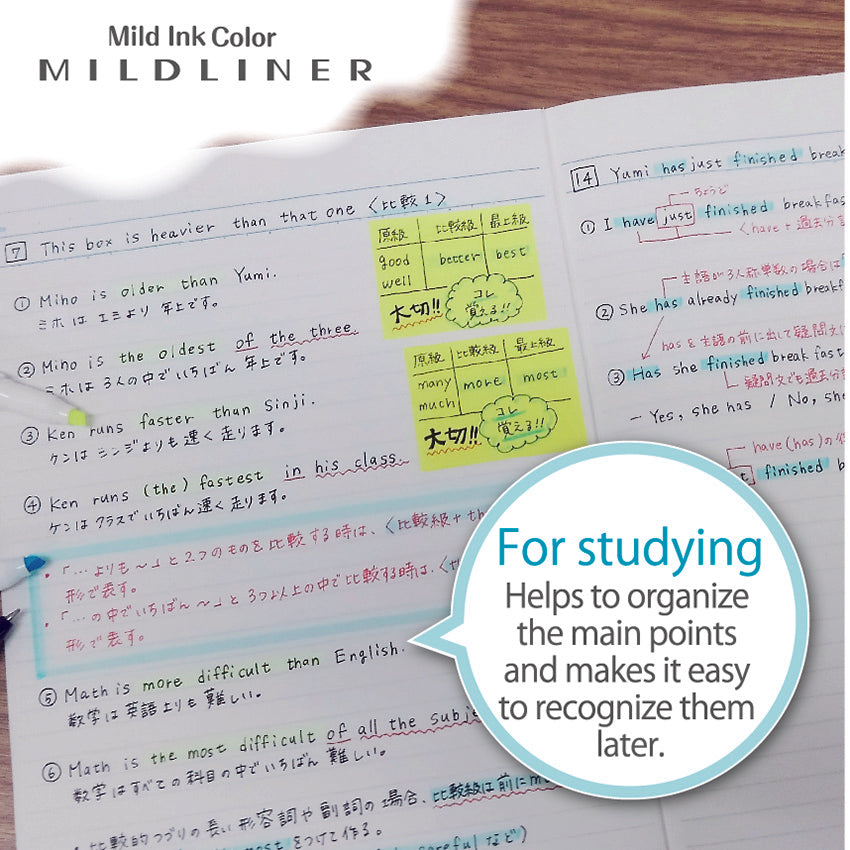 Mild Ink Color
MILDLINER
7 This box is heavier than that one 〈比較1〉
① Miho is older than Yumi.
ミホは ユミより 年上です。
② Miho is the oldest of the three.
ミホは 3人の中でいちばん 年上です。
③ Ken runs faster than Sinji.
ケンは シンジよりも 速く 走ります。
④ Ken runs (the) fastest in his class.
ケンは クラスで いちばん 速く 走ります。
・「…よりも〜」と 2つのものを 比較する 時は、〈比較級+th
形で表す。
・「…の中でいちばん〜」と 3つ以上の中で比較する時は、〈
形で表す。
⑤ Math is more difficult than English.
数学は 英語よりも 難しい。
⑥ Math is the most difficult of all the subje
数学は すべての 科目の中で いちばん 難しい。
・比較的つづりの長い 形容詞や 副詞の 場合、比較級は前にm
most をつけて作る。
careful など)
原級 比較級 最上級
good better best
well
大切!! コレ
覚える!!
原級 比較級 最上級
many more most
much
大切!! コレ
覚える!!
14 Yumi has just finished break
ちょうど
① I have just finished breakfas
〈have + 過去分
主語が3人称単数の場合は
② She has already finished breakf
has を主語の前に出して疑問文に
③ Has she finished break fast
疑問文でも過去分
— Yes, she has / No, she
have (has) の
finished b
For studying
Helps to organize
the main points
and makes it easy
to recognize them
later.